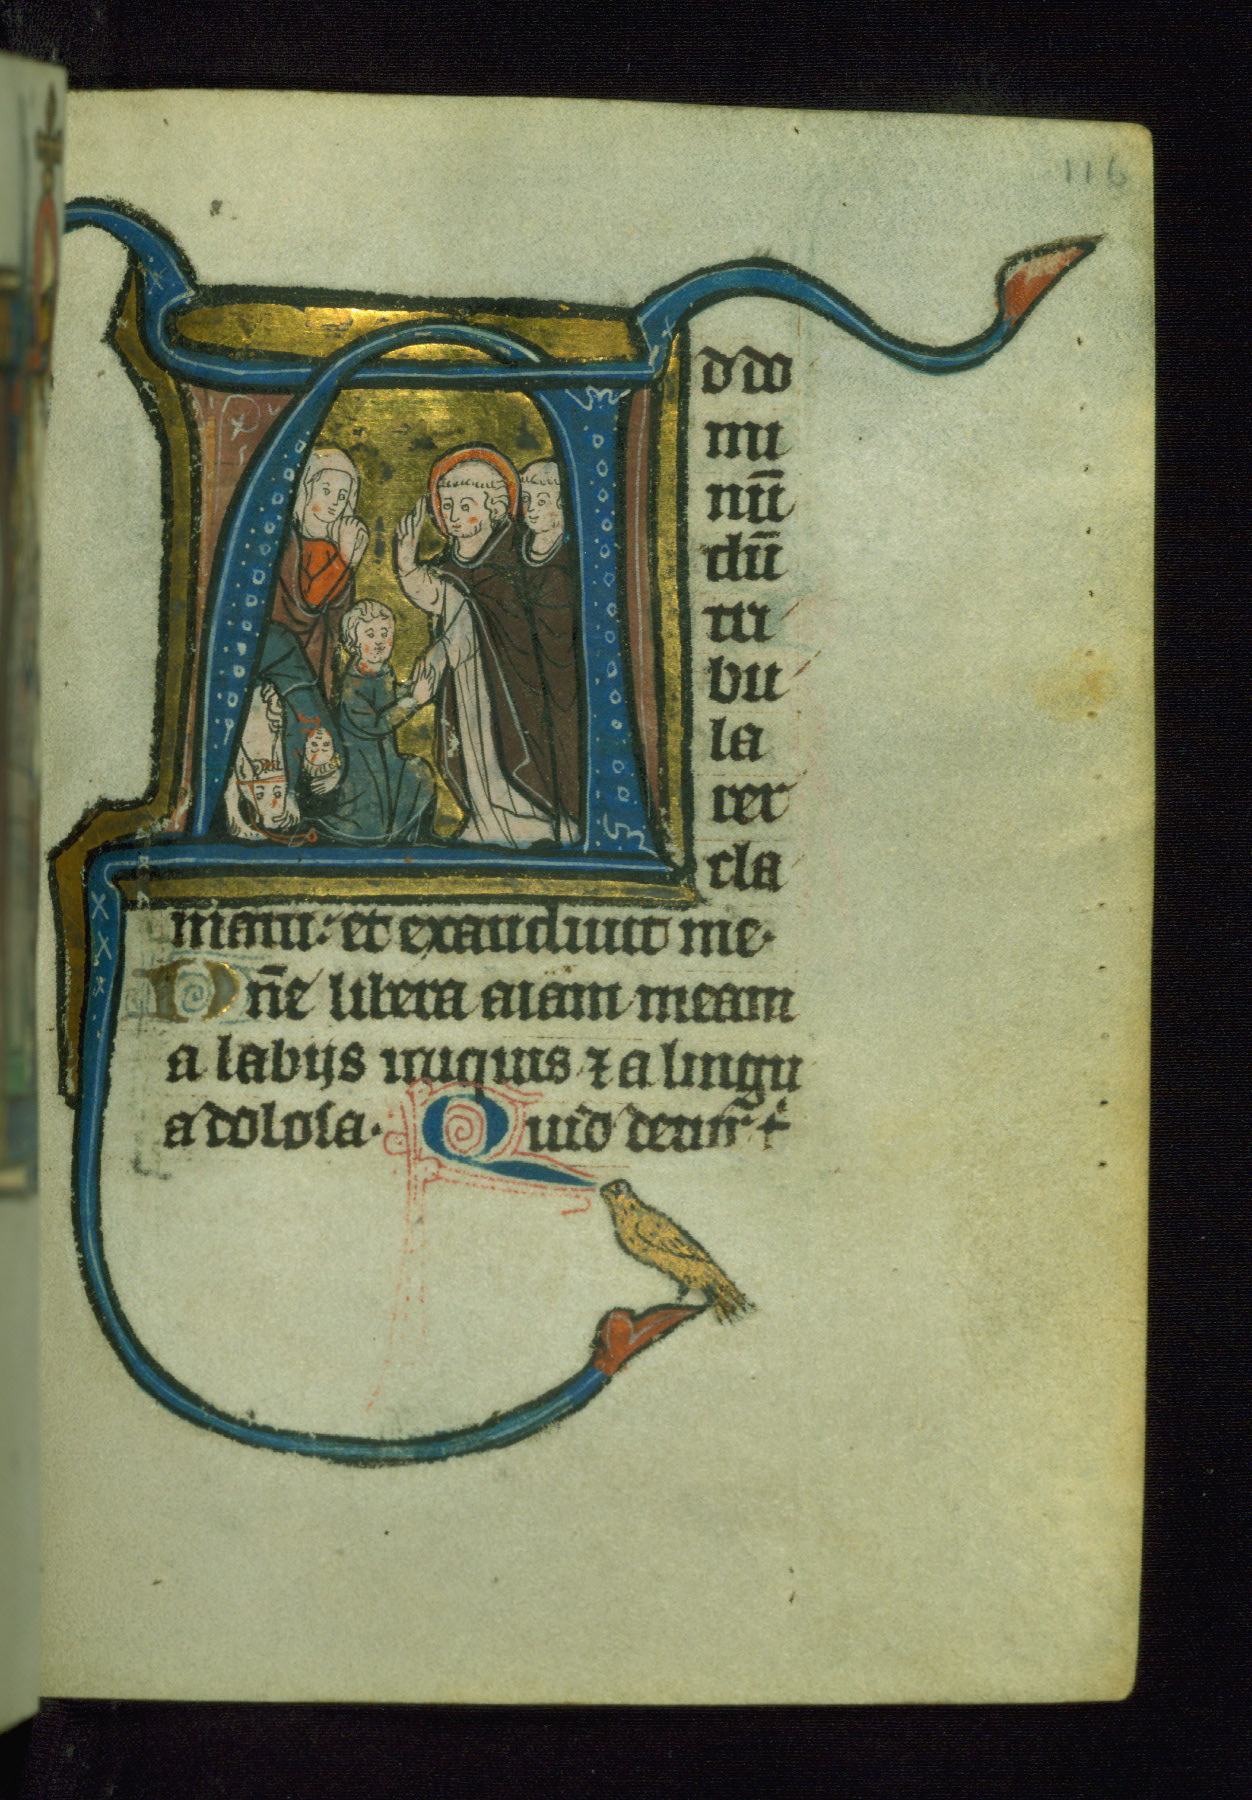 116
A
d do
mi
nū
dū
tri
bu
la
rer
cla
maui: et exaudiuit me.
Dn̄e libera aīam meam
a labijs iniquis ⁊ a lingu
a dolosa. Quid detur t